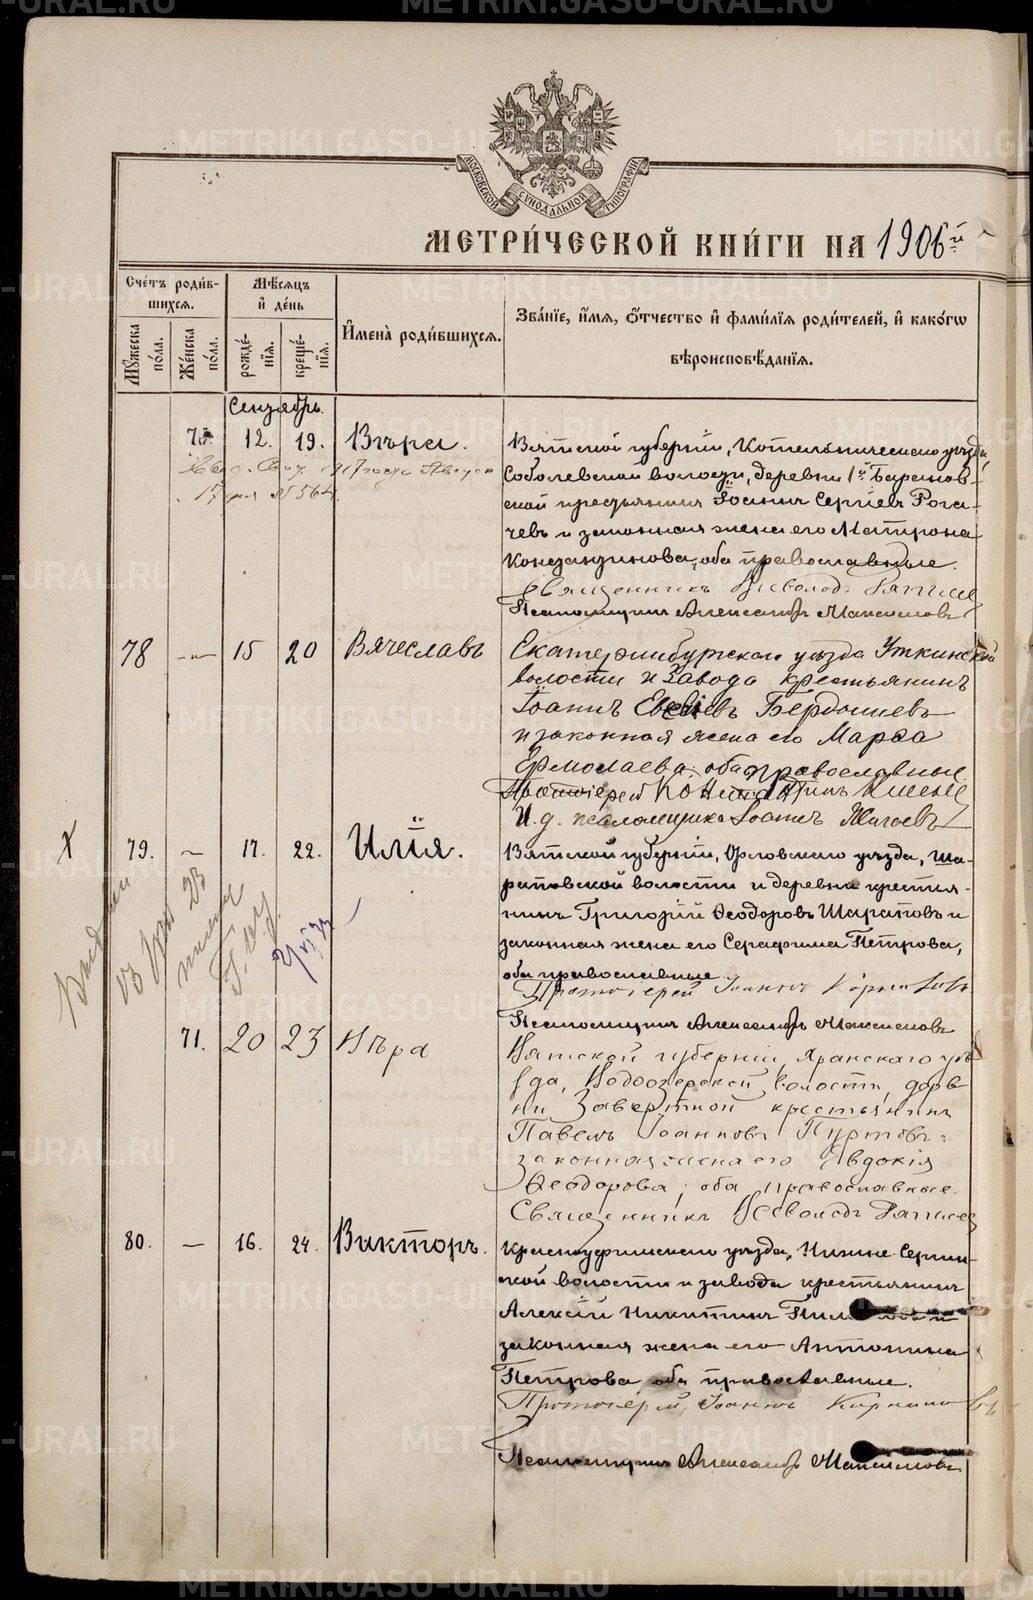 METRIKI.GASO-URAL.RU
МОСКОВСКОЙ СѴНОДАЛЬНОЙ ТИПОГРАФІИ
МЕТРИ́ЧЕСКОЙ КНИ́ГИ НА 1906й
Сче́тъ роди́в-
шихсѧ.
Мѣ́сѧцъ
и҆ де́нь
И҆мена̀ роди́вшихсѧ.
Зва́нїе, и҆́мѧ, ѻ҆́тчество и҆ фами́лїѧ роди́телей, и҆ како́гѡ
вѣроисповѣ́данїѧ.
Мꙋ́жеска
по́ла.
Же́нска
по́ла.
рожде́-
нїѧ.
креще́-
нїѧ.
Сентябрь.
70. 12. 19. Вѣра.
Вятской губерніи, Котельническаго уѣзда,
Соболевской волости, деревни 1й Баранов-
ской крестьянинъ Іоаннъ Сергіевъ Рога-
чевъ и законная жена его Матрона
Константинова, оба православные.
Священникъ Всеволодъ
Псаломщикъ Александръ Максимовъ
78 — 15 20 Вячеславъ
Екатеринбургскаго уѣзда Уткинской
волости и завода крестьянинъ
Іоаннъ Бердышевъ
и законная жена его Марѳа
Ермолаева, оба православные
Протоіерей
И. д. псаломщика Іоаннъ
79. — 17. 22. Илія.
Вятской губерніи, Орловскаго уѣзда, Ша-
раповской волости и деревни крестья-
нинъ Григорій Ѳеодоровъ Шараповъ и
законная жена его Серафима Петрова,
оба православные
Протоіерей Іоаннъ
Псаломщикъ Александръ Максимовъ
71. 20 23 Вѣра
Вятской губерніи, Яранскаго уѣз-
зда, Водоозерской волости, дерев-
ни крестьянинъ
Павелъ Іоанновъ Пуртовъ
законная жена его Евдокія
Ѳеодорова, оба православные.
Священникъ Всеволодъ
80. — 16. 24. Викторъ.
Красноуфимскаго уѣзда, Нижне-Сергин-
ской волости и завода крестьянинъ
Алексій Никитинъ
законная жена его Антонина
Петрова, оба православные.
Протоіерей Іоаннъ
Псаломщикъ Александръ Максимовъ